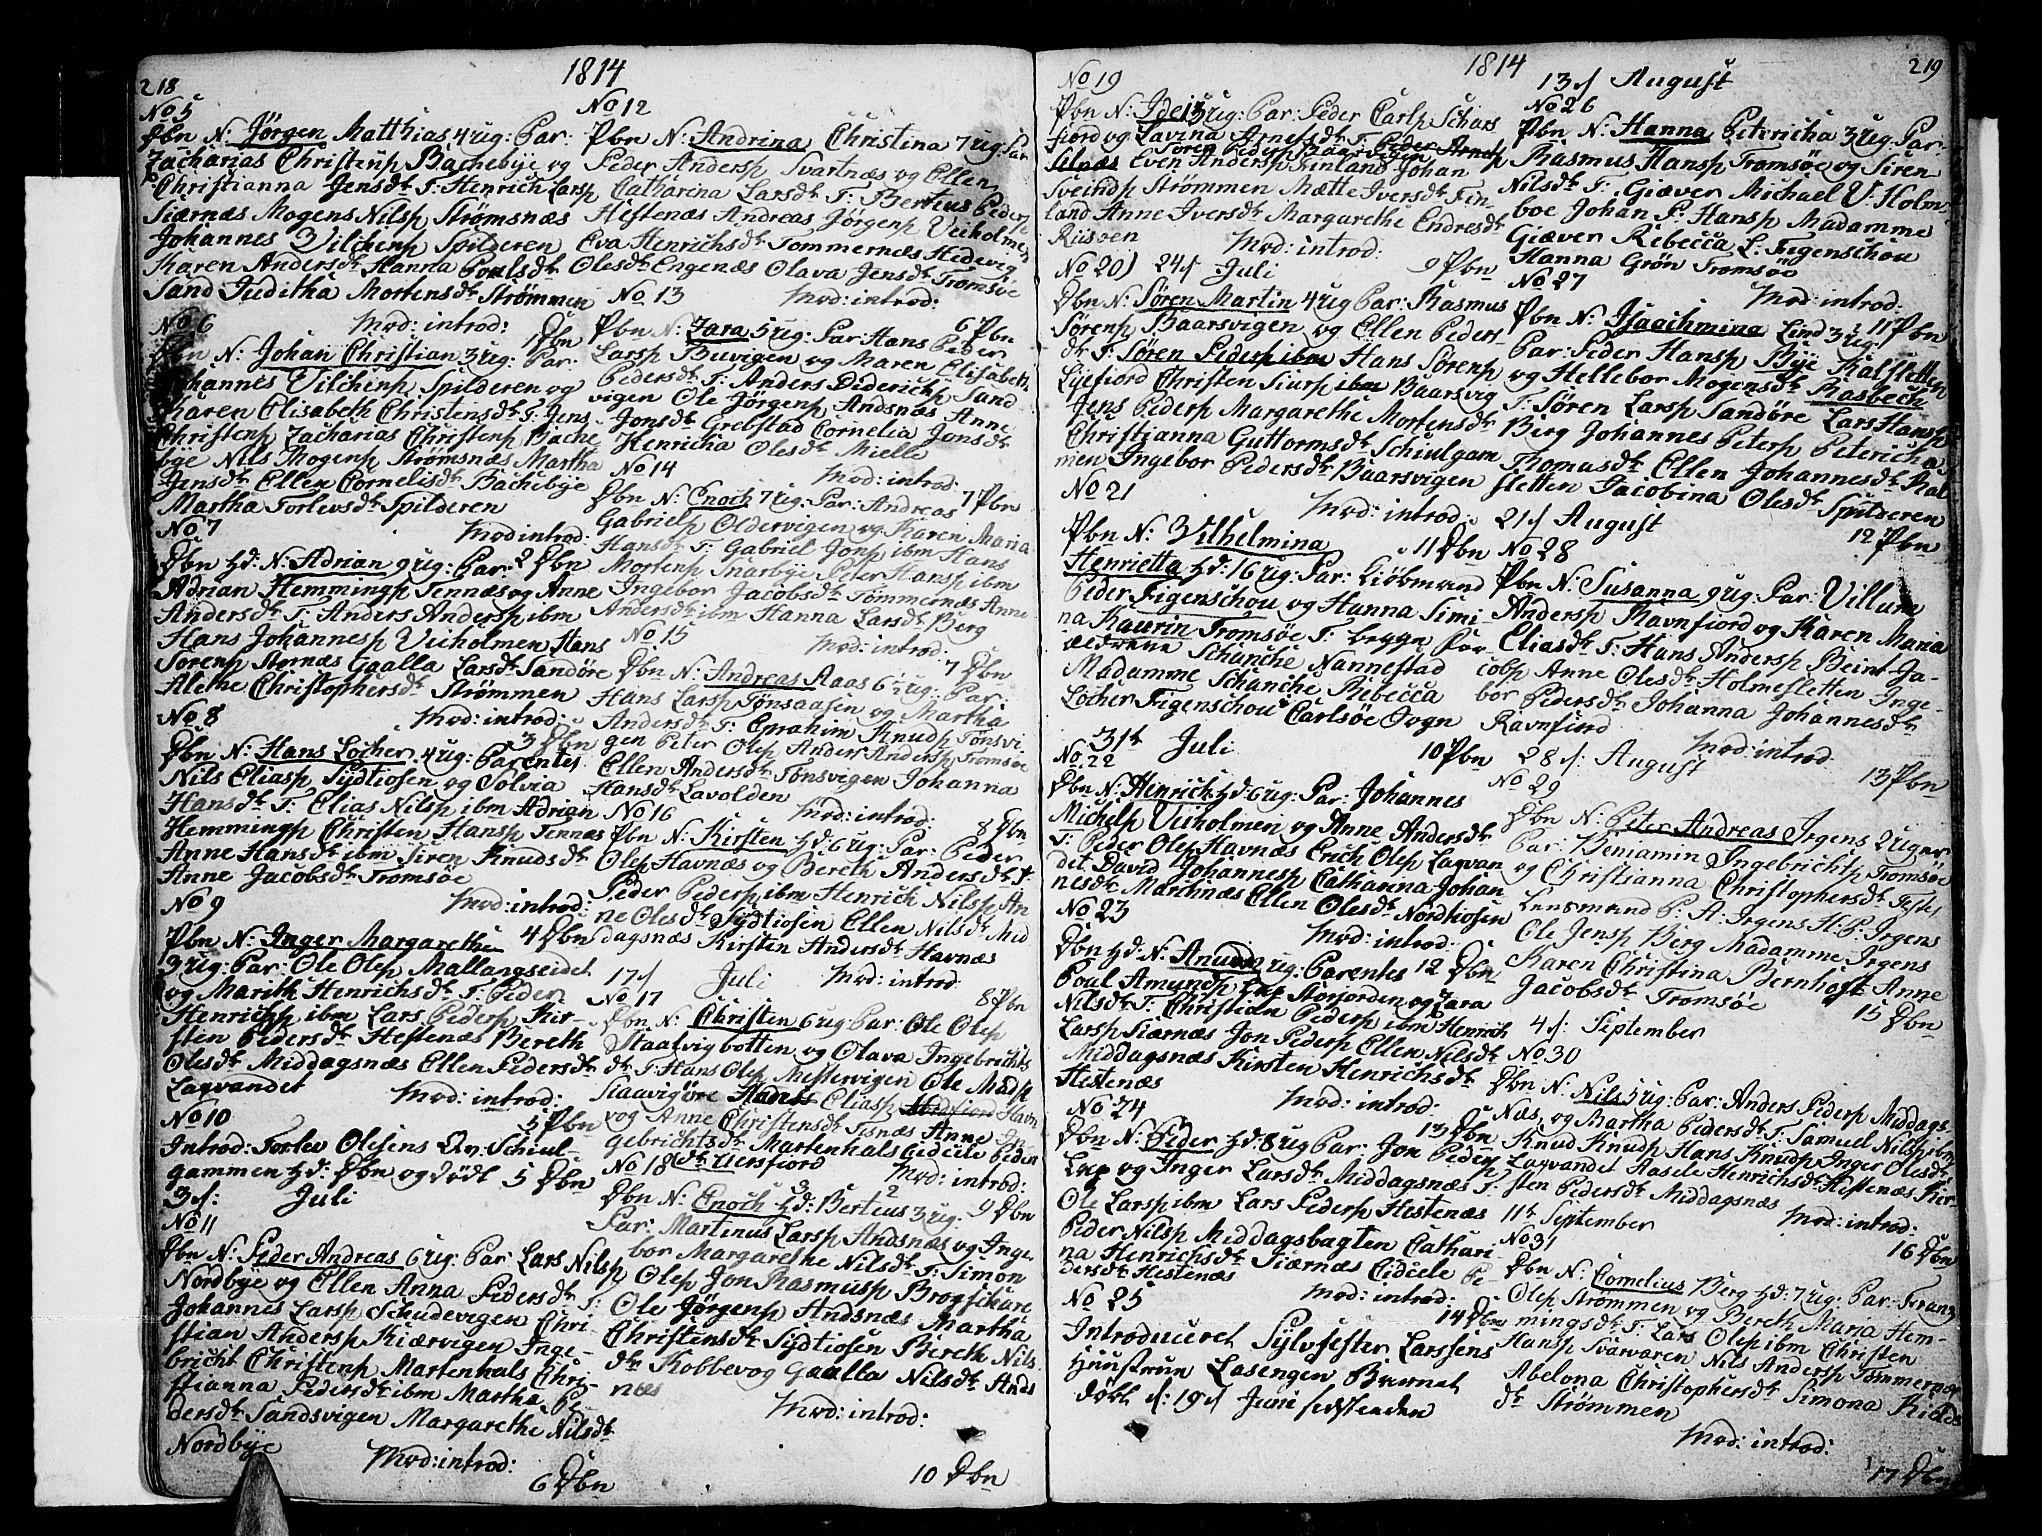 218
1814
No 5
Dbn N: Jørgen Matthias 4 ug: Par:
Zacharias Christensp Bachebye og
Christianna Jensdt T: Henrich Larsp
Siærnæs Mogens Nilsp Strømsnæs
Johannes Vilchensp Spilderen
Karen Andersdt Hanna Poulsdt
Sand Juditha Mortensdt Strømmen
No 6 Mod: introd:
1 Dbn
Dbn N: Johan Christian 3 ug: Par:
Johannes Vilchensp Spilderen og
Karen Elisabeth Christensdt T: Jens
Christensp Zacharias Christensp Bache
bye Nils Mogensp Strømsnæs Martha
Jensdt Ellen Cornelisdt Bachebye
Martha Torlevsdt Spilderen
No 7 Mod introd:
2 Dbn
Dbn Hd: N: Adrian 9 ug: Par:
Adrian Hemmingsp Tennæs og Anne
Andersdt T: Anders Andersp ibm
Hans Johannesp Vieholmen Hans
Sørensp Stornæs Gaalla Larsdt Sandøre
Alethe Christophersdt Strømmen
No 8 Mod: introd:
3 Dbn
Dbn N: Hans Locher 4 ug: Parentes
Nils Eliasp Sydtiosen og Solvia
Hansdt T: Elias Nilsp ibm Adrian
Hemmingsp Christen Hansp Tennæs
Anne Hansdt ibm Siren Knudsdt
Anne Jacobsdt Tromsøe
No 9 Mod: introd:
4 Dbn
Pbn N: Inger Margarethe
3 ug: Par: Ole Olsp Mallangseidet
og Marith Henrichsdt T: Peder
Henrichsp ibm Lars Pedersp Kir-
sten Pedersdt Hestenæs Bereth
Olesdt Middagsnæs Ellen Pedersdt
Lagvandet Mod: introd:
No 10
5 Pbn
Introd: Torlev Olesens Qv: Schiul-
gammen Hd: Dbn og dødt 5 Dbn
3 s: Juli
No 11
Dbn N: Peder Andreas 6 ug: Par: Lars Nilsp
Nordbye og Ellen Anna Pedersdt T:
Johannes Larsp Schudevigen Chri-
stian Andersp Kiærvigen Inge-
bricht Christensp Martenhals Chri-
stianna Pedersdt ibm Martha Pe-
dersdt Sandsvigen Margarethe Nilsdt
Nordbye Mod: introd:
6 Dbn
No 12
Pbn N: Andrina Christina 7 ug: Par
Peder Andersp Svartnæs og Ellen
Catharina Larsdt T: Bertius Peders
Hestenæs Andreas Jørgensp Vieholmen
Eva Henrichsdt Tommernæs Hedevig
Olesdt Engenæs Olava Jensdt Tromsøe
No 13 Mod: introd:
6 Pbn
Pbn N: Zara 5 ug: Par: Hans Peder
Larsp Buvigen og Maren Elisabeth
Pedersdt T: Anders Diderichsp Sand
vigen Ole Jørgensp Andsnæs Anne
Jonsdt Grebstad Cornelia Jonsdt
Henricha Olesdt Mielle
No 14 Mod: introd:
7 Pbn
Dbn N: Enoch 7 ug: Par: Andreas
Gabrielsp Oldervigen og Karen Maria
Hansdt T: Gabriel Jonsp ibm Hans
Mortensp Snarbye Peter Hansp ibm
Ingebor Jacobsdt Tømmernæs Anne
Andersdt ibm Hanna Larsdt Berg
No 15 Mod: introd:
7 Dbn
Dbn N: Andreas Aaas 6 ug: Par:
Hans Larsp Tønsaasen og Martha
Andersdt T: Ephraim Knudsp Tønsvi-
gen Peter Olsp Anders Andersp Tromsøe
Ellen Andersdt Tønsvigen Johanna
Hansdt Lavolden
No 16 Mod: introd:
8 Dbn
Pbn N: Kirsten Hd: 6 ug: Par: Peder
Olsp Havnæs og Bereth Andersdt T:
Peder Pedersp ibm Henrich Nilsp An
ne Olesdt Sydtiosen Ellen Nilsdt Mid
dagsnæs Kirsten Andersdt Havnæs
17 s Juli Mod: introd:
No 17 8 Pbn
Dbn N: Christen 6 ug: Par: Ole Olsp
Staalvigbotten og Olava Ingebrichts
dt T: Hans Olsp Mestervigen Ole Madsp
Staavigøre Hans Eliasp Havn
vog Anne Christensdt Tisnæs Anne In
gebrichtsdt Martenhals Cidcele Peder
No 18 dt Uersfiord Mod: introd:
9 Dbn
Dbn N: Enoch Hd: Bertius 3 ug:
Par: Martinus Larsp Andsnæs og Inge
bor Margarethe Nilsdt T: Simon
Olsp Jon Rasmusp Bropsikure
Ole Jørgensp Andsnæs Martha
Christensdt Sydtiosen Bereth Nils
dt Kobbevog Gaalla Nilsdt Ands
næs Mod: introd:
10 Dbn
1814
219
No 19
Pbn N: Ide 13 ug: Par: Peder Carlsp Schars
fiord og Lavina Arnesdt T: Peder Arnesp
Selnæs Søren Pedersp Baarsvigen
Even Andersp Finland Johan
Sveindsp Strømmen Mætte Iversdt Fin-
land Anne Iversdt Margarethe Endresdt
Riisøen Mod: introd:
No 20) 24 s Juli 9 Pbn
Dbn N: Søren Martin 4 ug Par: Rasmus
Sørensp Baarsvigen og Ellen Peders-
dt T: Søren Pedersp ibm Hans Sørensp
Lyefiord Christen Siursp ibm Baarsvig
Jens Pedersp Margarethe Mortensdt
Christianna Guttormsdt Schiulgam
men Ingebor Pedersdt Baarsvigen
No 21 Mod: introd:
11 Dbn
Pbn N: Vilhelmina
Henrietta Hd: 16 ug: Par: Kiøbmand
Peder Figenschou og Hanna Simi
na Kaurin Tromsøe T: begge For
ældrene Schanche Nannestad
Madamme Schanche Rebecca
Locher Figenschou Carlsøe Sogn
31te Juli 10 Pbn
No 22
Dbn N: Henrich Hd: 6 ug: Par: Johannes
Michelsp Vieholmen og Anne Andersdt
T: Peder Olsp Havnæs Erich Olsp Lagvan
det David Johannesp Cathanna Johan
nesdt Marchnæs Ellen Olesdt Nordtiosen
No 23 Mod: introd:
12 Dbn
Dbn Hd: N: Amund ug: Parentes
Poul Amundsp Storjorden og Zara
Nilsdt T: Christian Pedersp ibm Henrich
Larsp Siærnæs Jon Pedersp Ellen Nilsdt
Middagsnæs Kirsten Henrichsdt
Hestenæs Mod: introd:
No 24
13 Dbn
Dbn N: Peder Hd: 8 ug Par: Jon Pedersp
og Inger Larsdt Middagsnæs T:
Ole Larsp ibm Lars Pedersp Hestenæs
Peder Nilsp Middagsbagten Cathari-
na Henrichsdt Siærnæs Cidcele Pe-
dersdt Hestenæs Mod: introd:
No 25 14 Dbn
Introduceret Sylvfester Larssens
Huustrue Lasengen Barnet
døbt s: 19 s Juni sidstleeden
13 s August
No 26
Pbn N: Hanna Petericha 3 ug: Par-
Rasmus Hansp Tromsøe og Siren
Nilsdt T: Giæver Michael V: Holm-
boe Johan P: Hansp Madamme
Giæver Rebecca L: Figenschou
Hanna Grøn Tromsøe
No 27 Mod: introd:
11 Pbn
Pbn N: Isachmina Lind 3 ug:
Par: Peder Hansp Bye Kalsletten
og Hellebor Mogensdt Rasbech
T: Søren Larsp Sandøre Lars Hansp
Berg Johannes Petersp Petericha
Thomasdt Ellen Johannesdt Kal
sletten Jacobina Olesdt Spilderen
21 s August 12 Pbn
No 28
Pbn N: Susanna 9 ug: Par: Villum
Andersp Ravnfiord og Karen Maria
Eliasdt T: Hans Andersp Beint Ja-
cobsp Anne Olesdt Holmesletten Inge-
bor Pedersdt Johanna Johannesdt
Ravnfiord Mod: introd:
28 s: August 13 Pbn
No 29
Dbn N: Peter Andreas Irgens 2 uger
Par: Benjamin Ingebrichtsp Tromsøe
og Christianna Christophersdt Testes
Lensmand P: A: Irgens H: P: Irgens
Ole Jensp Berg Madamme Irgens
Karen Christina Bernhoft Anne
Jacobsdt Tromsøe 15 Dbn
4 s: September
No 30
Dbn N: Nils 5 ug: Par: Anders Pedersp Middags
Næs, og Martha Pedersdt T: Samuel Nilsp ibm
Knud Knudsp Hans Knudsp Inger Olesdt
Lagvandet Aasele Henrichsdt Hestenæs Kir-
sten Pedersdt Middagsnæs
11te September Mod: introd:
No 31 16 Dbn
Dbn N: Cornelius Berg Hd: 7 ug: Par: Frans
Olsp Strømmen og Bereth Maria Hem-
mingsdt T: Lars Olsp ibm Christen
Hansp Svarvaren Nils Andersp Tømmernæs
Abelona Christophersdt Simona Kield
dt Strømmen
Mod: introd:
17 Dbn